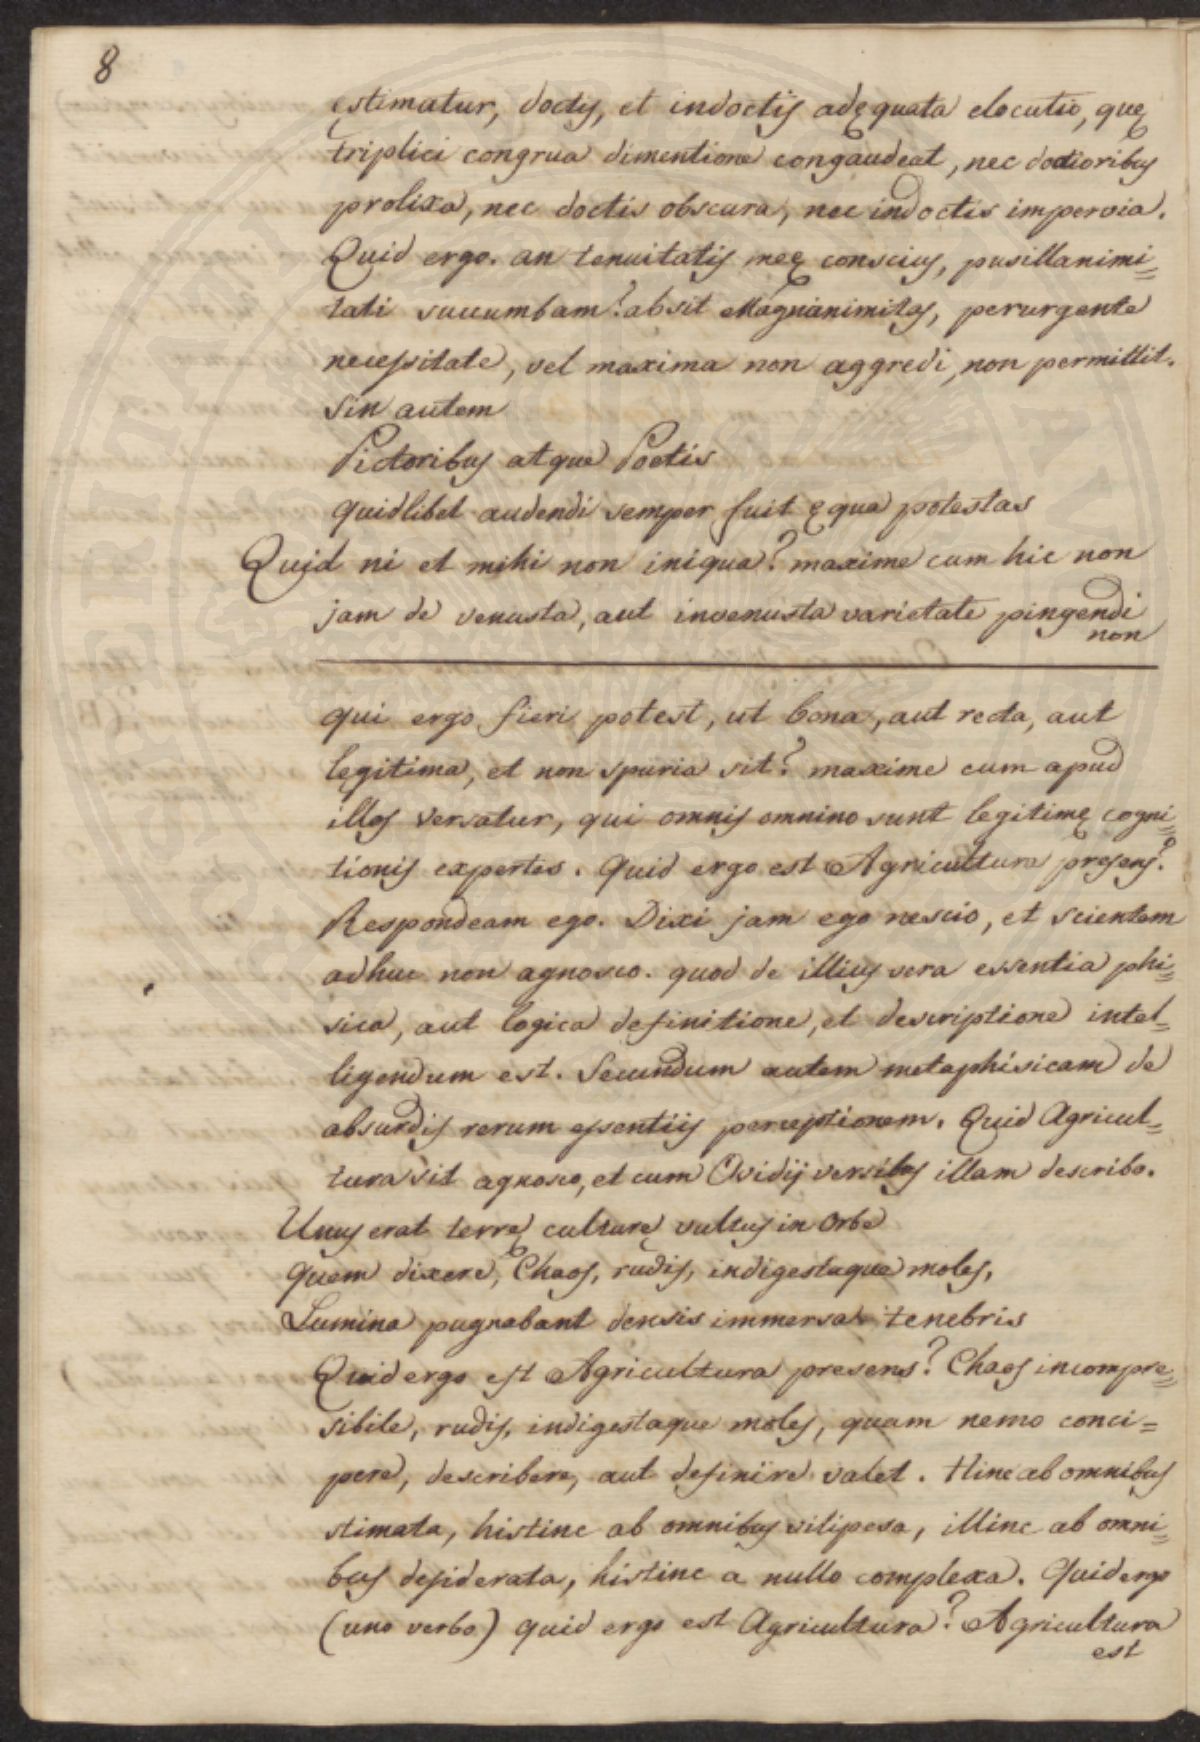 8
ęstimatur, doctis, et indoctis adęquata elocutio, quę
triplici congrua dimentione congaudeat, nec doctioribus
prolixa, nec doctis obscura, nec indoctis impervia.
Quid ergo. an tenuitatis meę conscius, pusillanimi=
tati sucumbam? absit Magnanimitas, perurgente
necessitate, vel maxima non aggredi, non permittit.
sin autem
Pictoribus atque Poetis
quidlibet audendi semper fuit ęqua potestas
Quid ni et mihi non iniqua? maxime cum hic non
jam de venusta, aut invenusta varietate pingendi
non
qui ergo fieri potest, ut bona, aut recta, aut
lęgitima, et non spuria sit? maxime cum apud
illos versatur, qui omnis omnino sunt legitimę cogni=
tionis expertes. Quid ergo est Agricultura presens?
Respondeam ego. Dixi jam ego nescio, et scientem
adhuc non agnosco. quod de illius vera essentia phi=
sica, aut logica definitione, et descriptione intel=
ligendum est. Secundum autem metaphisicam de
absurdis rerum essentiis perceptionem. Quid Agricul=
tura sit agnosco, et cum Ovidij versibus illam describo.
Unus erat terrę culturę vultus in Orbe
Quem dixere, Chaos, rudis, indigestaque moles,
Lumina pugnabant densis immersa tenebris
Quid ergo est Agricultura presens? Chaos incompre=
sibile, rudis, indigestaque moles, quam nemo conci=
pere, describere, aut definire valet. Hinc ab omnibus
stimata, histinc ab omnibus vilipesa, illinc ab omni=
bus desiderata, histinc a nullo complexa. Quid ergo
(uno verbo) quid ergo est Agricultura? Agricultura
est